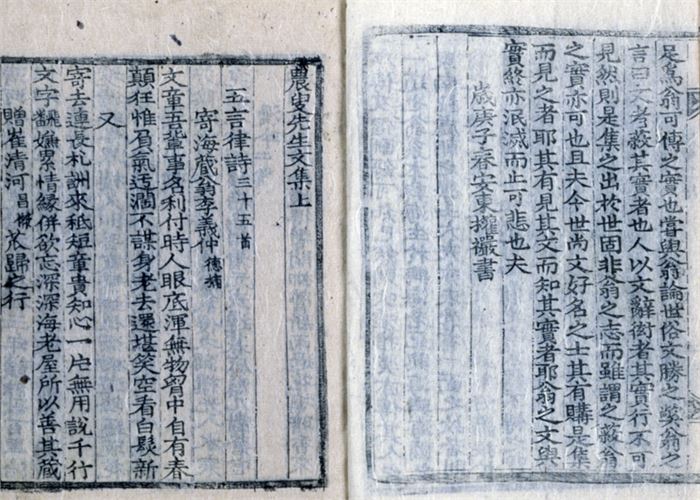 足爲翁可傳之實也嘗與翁論世俗文勝之獘翁之
言曰文者蔽其實者也人以文辭衒者其實行不可
見然則是集之出於世固非翁之志而雖謂之蔽翁
之實亦可也且夫今世尚文好名之士其有購是集
而見之者耶其有見其文而知其實者耶翁之文與
實終亦泯滅而止可悲也夫
歲庚子春安東權書
農叟先生文集上
五言律詩三十五首
寄海藏翁李義仲德輔
文章五輩事名利付時人眼底渾無物胷中自有春
顛狂惟負氣迂濶不謀身老去還堪笑空看白髮新
又
寄去連長札詶來秪短章貴知心一片無用說千行
文字飜嫌累情緣併欲忘深深海老屋所以善其藏
贈崔淸河昌歸之行